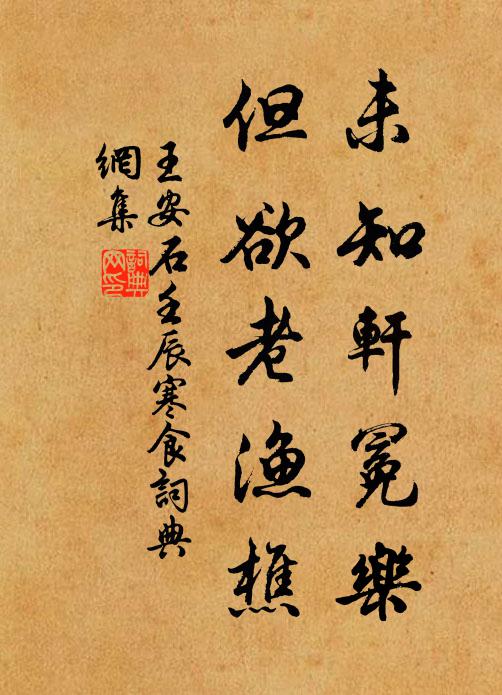 未知軒冕樂
但欲老漁樵
王安石壬辰寒食詞典
網集
詞典
网印